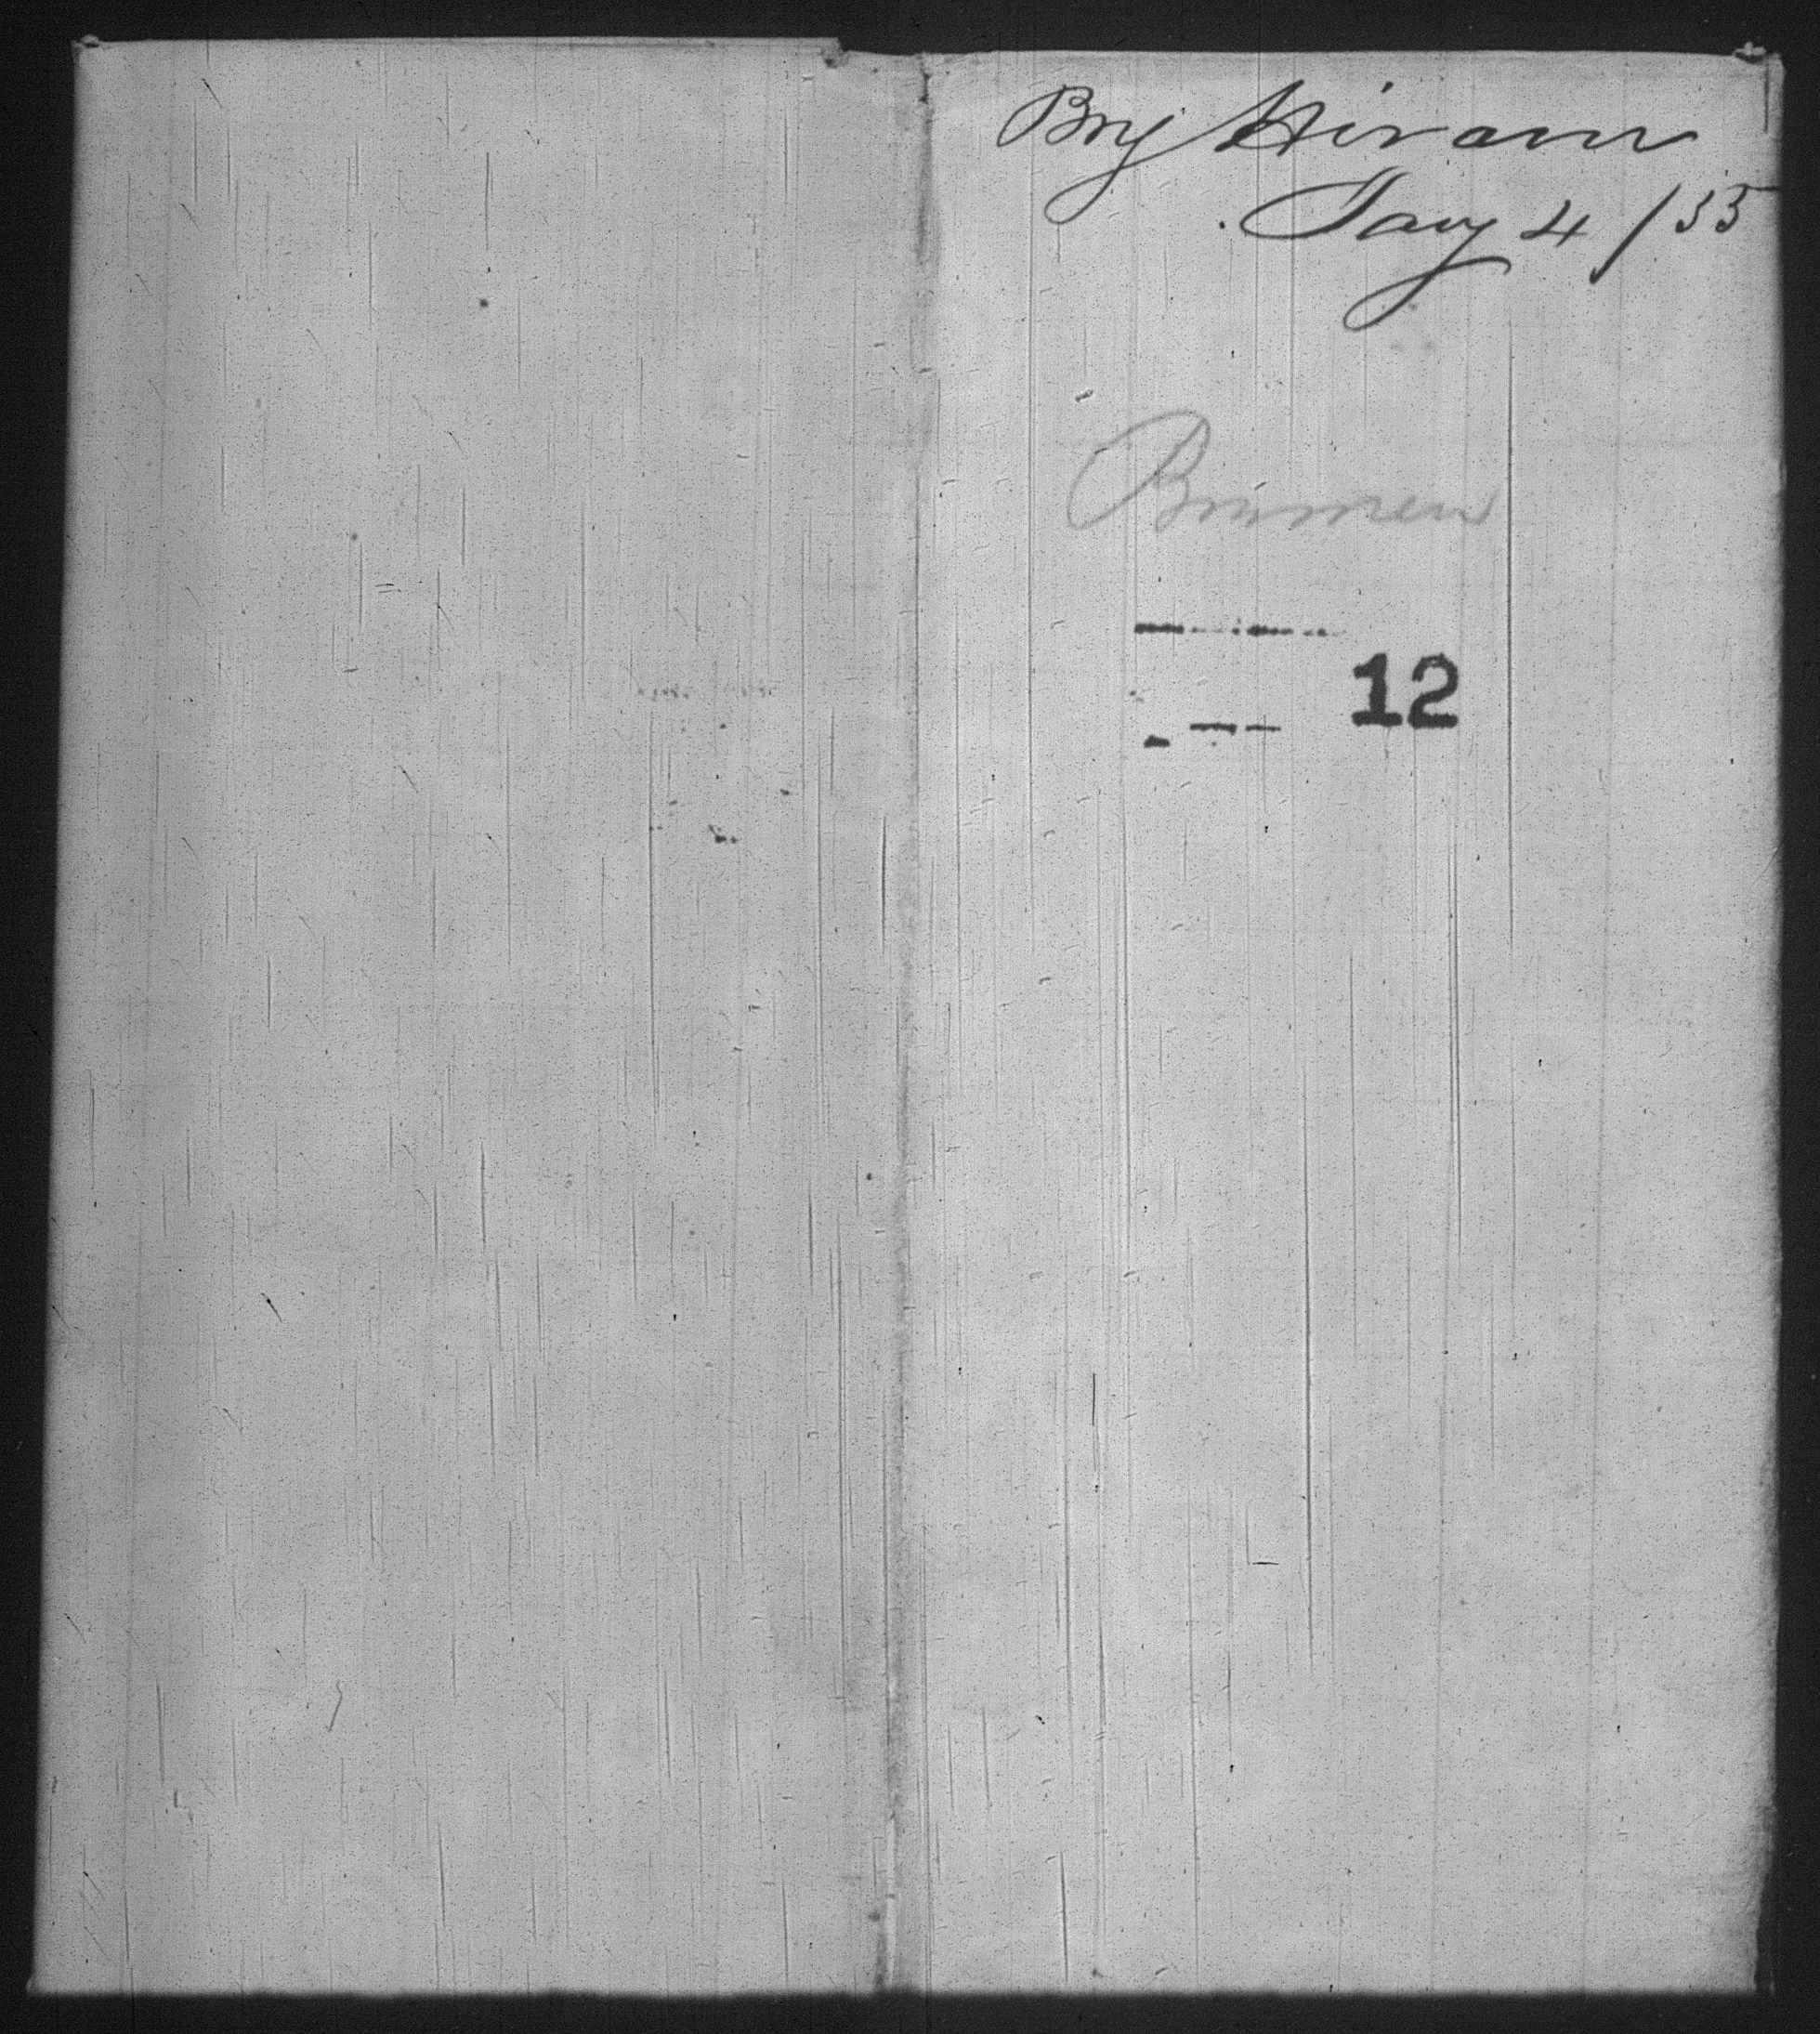 Brig Hiram
Jany 4 / 55
Bremen
12